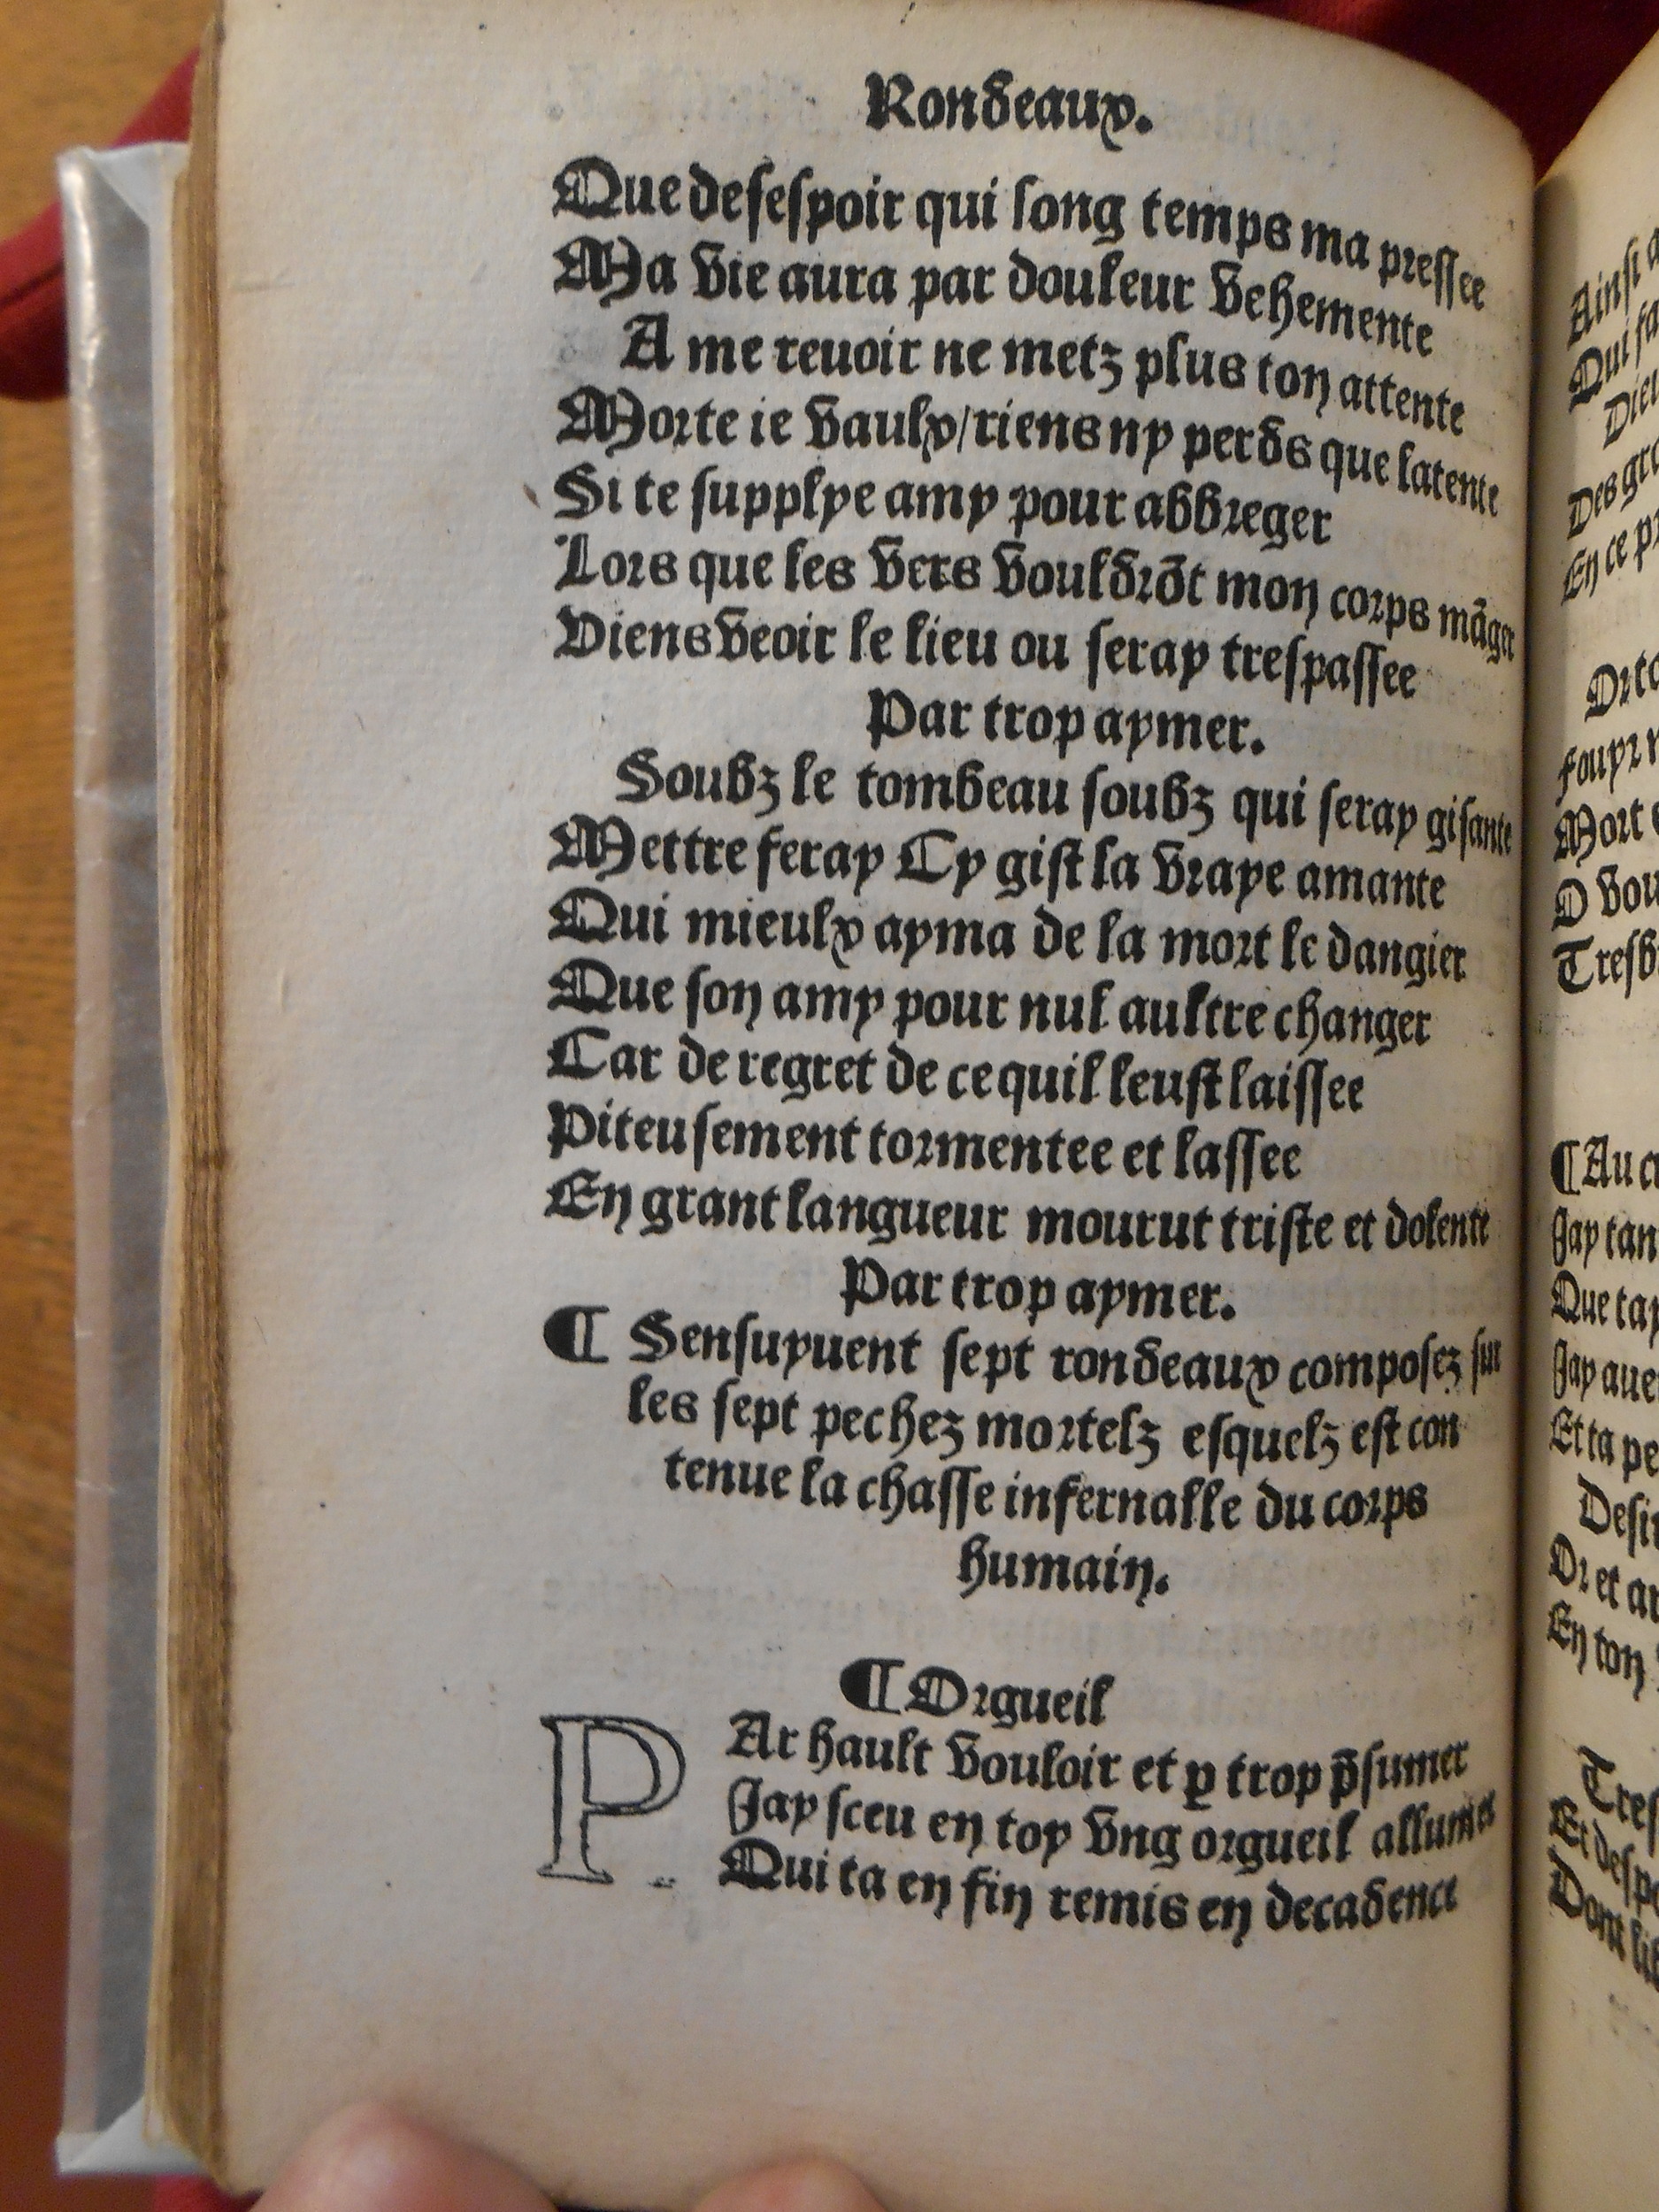 Rondeaux.
Que desespoir qui long temps ma pressee
Ma vie aura par douleur vehemente
A me reuoir ne metz plus ton attente
Morte ie vaulx/riens ny perds que latente
Si te supplye amy pour abbreger
Lors que les vers vouldrōt mon corps māger
Viens veoir le lieu ou seray trespassee
Par trop aymer.
Soubz le tombeau soubz qui seray gisante
Mettre feray Cy gist la vraye amante
Qui mieulx ayma de la mort le dangier
Que son amy pour nul aultre changer
Car de regret de ce quil leust laissee
Piteusement tormentee et lassee
En grant langueur mourut triste et dolente
Par trop aymer.
¶ Sensuyuent sept rondeaux composez sur
les sept pechez mortelz esquelz est con
tenue la chasse infernalle du corps
humain.
¶ Orgueil
PAr hault vouloir et ꝑ trop p̄sumer
Jay sceu en toy vng orgueil allumer
Qui ta en fin remis en decadence
Ainsi
Qui
Des
En ce
Mort
O
¶ Au
Jay tan
Que
Jay
Et ta
Or et
En ton
Et
Dont